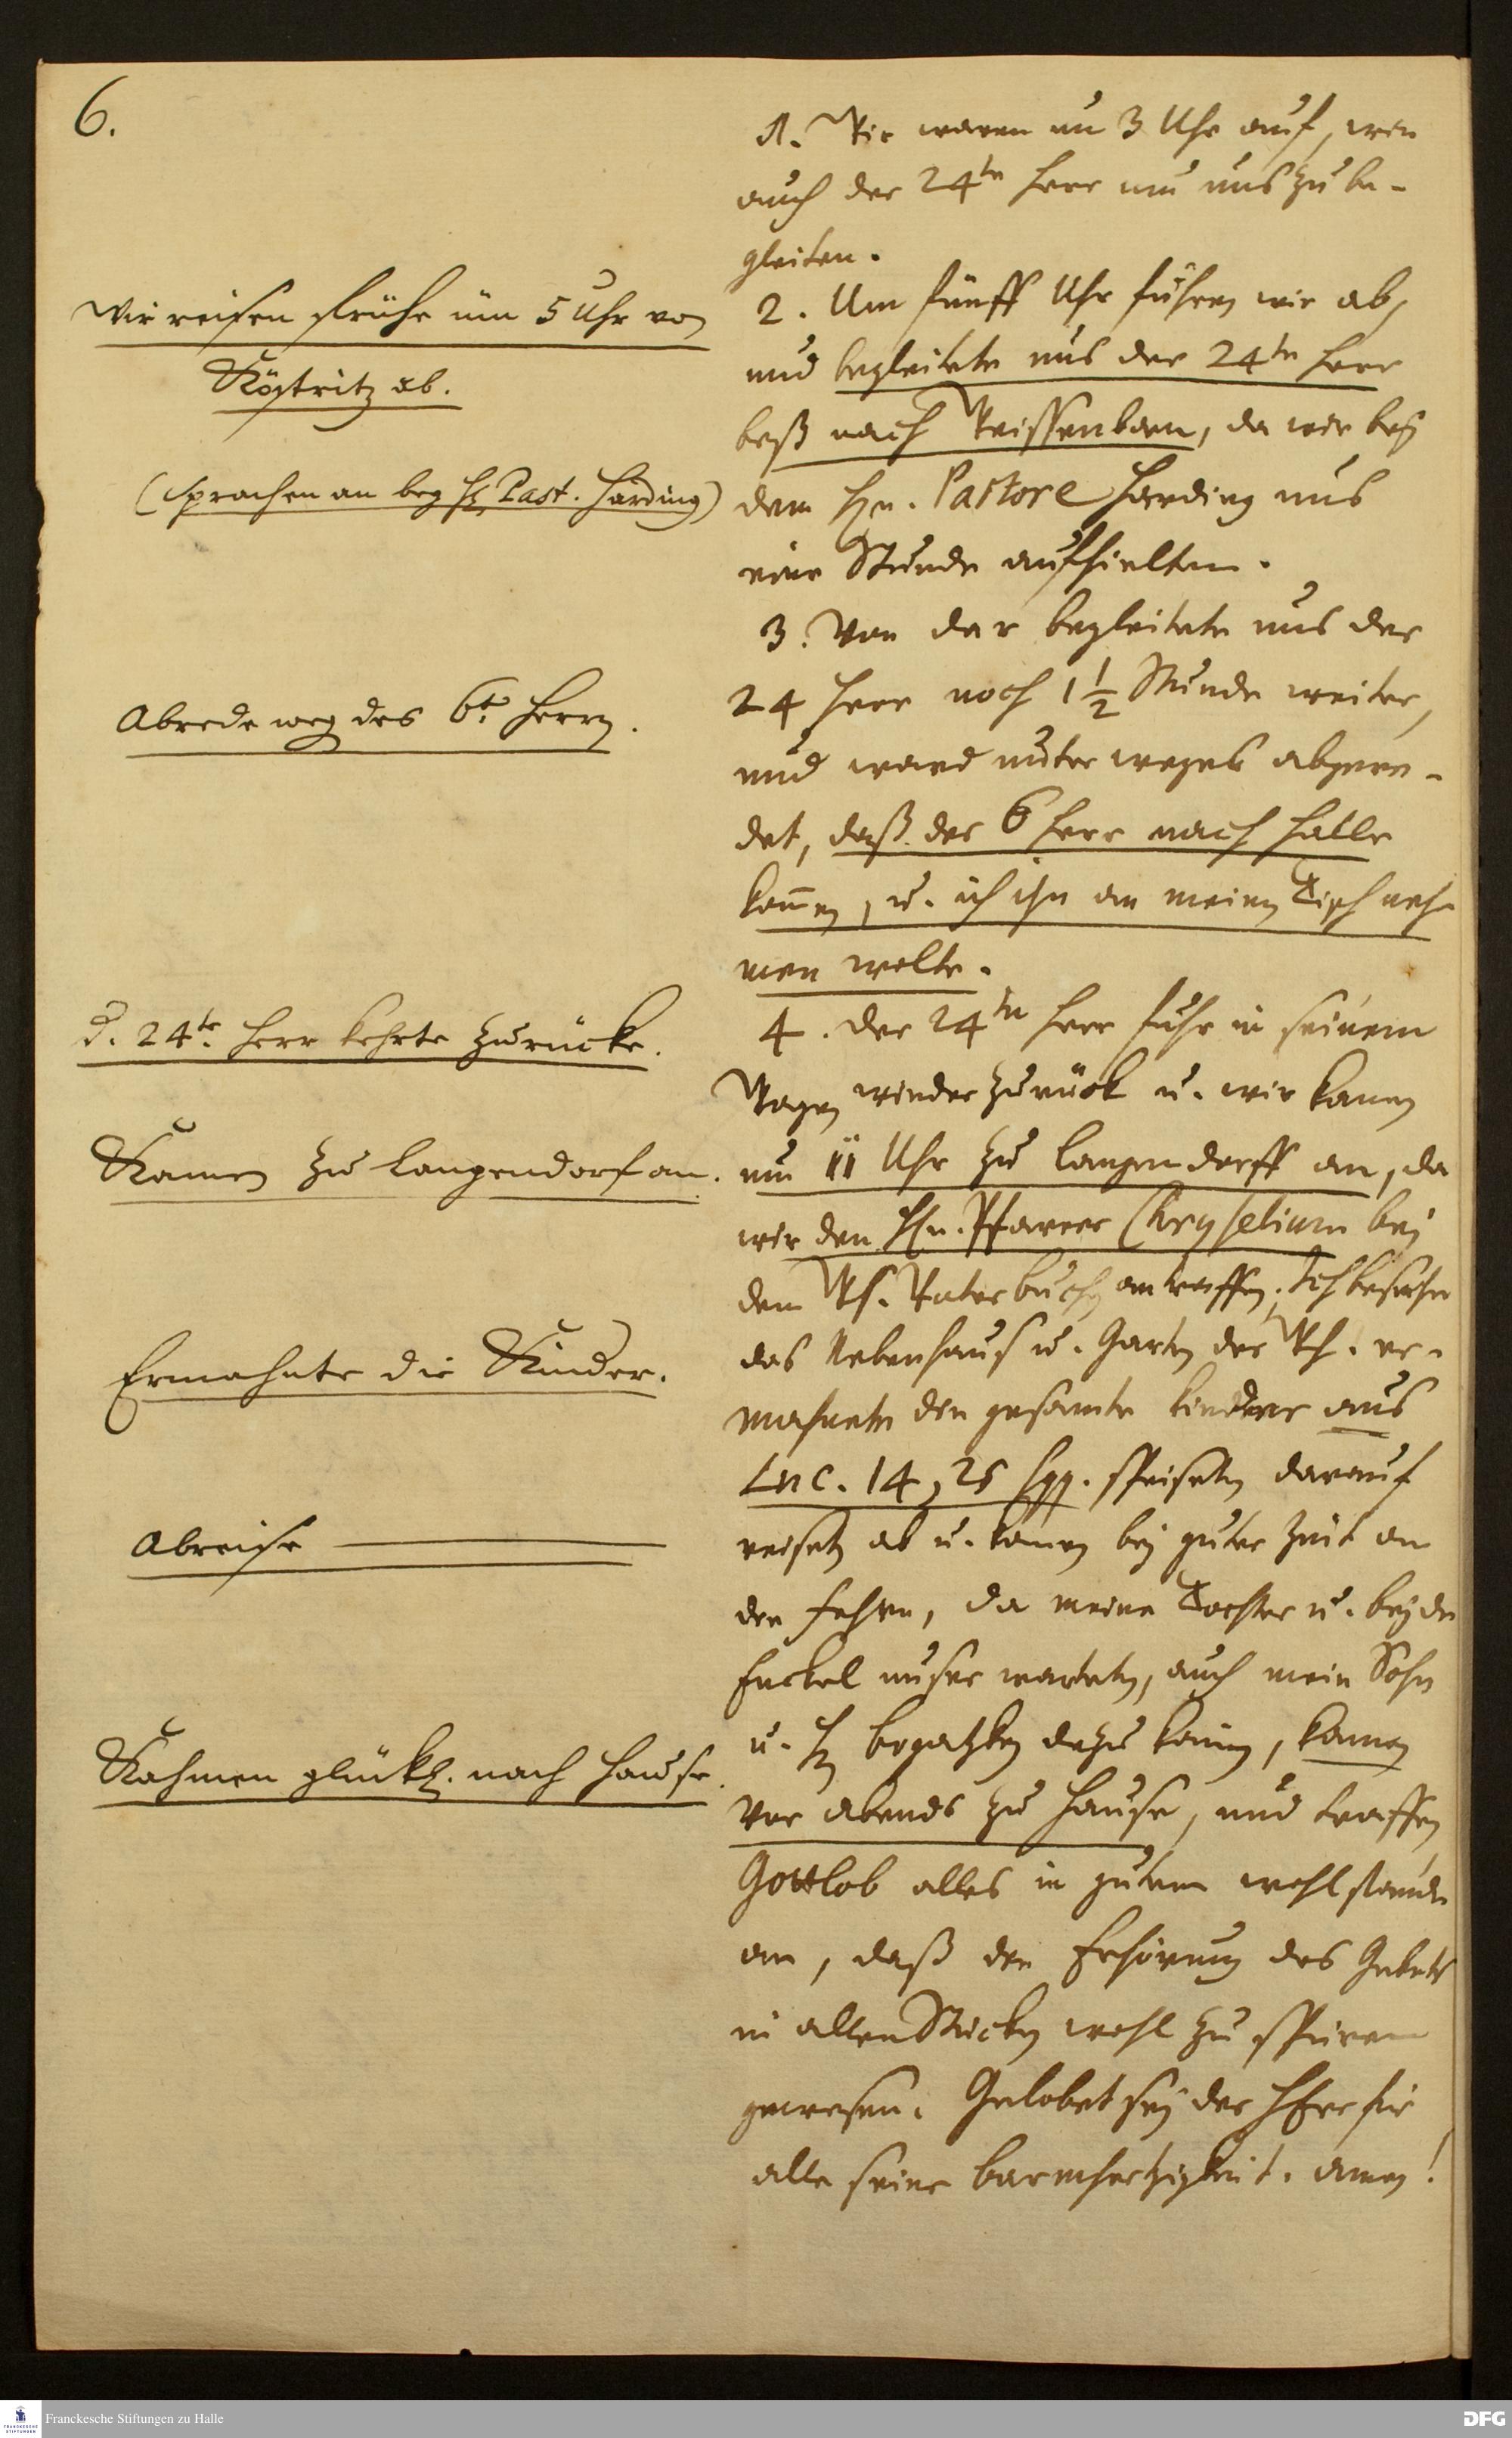 6.
Wir reisen frühe üm 5 Uhr von
Köstritz ab.
(sprachen an bey H. Past. Harding)
Abrede weg des 6t. Herrn.
d. 24te Herr kehrte zurücke.
Kamen zu Langendorf an.
Ermahnte die Kinder.
Abreise
Kahmen glückl. nach Hause.
1. Wir waren um 3 Uhr auf, wie
auch der 24te Herr um uns zu be-
gleiten.
2. Um fünff Uhr fuhren wir ab,
und begleitete uns der 24te Herr
biß nach Weissenborn, da wir bey
dem Hn. Pastore Harding uns
eine Stunde aufhielten.
3. Von dar begleitete uns der
24 Herr noch 1 1/2 Stunde weiter,
und ward unter weges abgere-
det, daß der 6 Herr nach Halle
kom̄en, u. ich ihn an meinen Tisch neh-
men wolte.
4. Der 24te Herr fuhr in seinem
Wagen wieder zurück u. wir kamen
um 11 Uhr zu Langendorff an, da
wir den Hn. Pfarrer Chryselium bei
dem Ws. Vater antraffen. Ich besahe
das Nebenhaus u. Garten des Wh. er-
mahnete die gesamte Kinder aus
Luc. 14, 25 sqq. speiseten darauf
reiseten ab u. kamen bey guter Zeit an
die Fehre, da meine Tochter u. beyde
Enckel unser warteten, auch mein Sohn
u. H. Bogatzky dazu kamen, kamen
vor abends zu Hause, und traffen
Gottlob alles in gutem wohlstande
an, daß die Erhörung des Gebets
in allen Stücken wohl zu spüren
gewesen. Gelobet sey der HErr für
alle seine Barmhertzigkeit. Amen!
Franckesche Stiftungen zu Halle
DFG